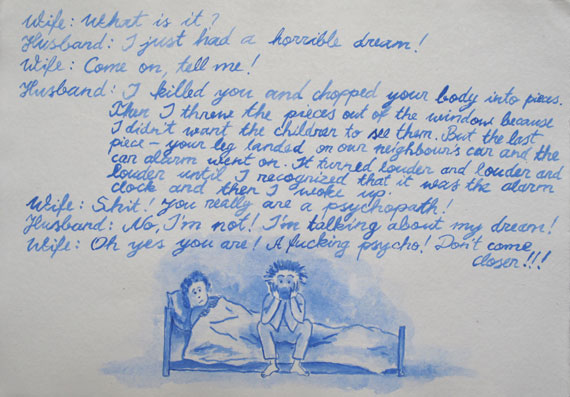 Wife: What is it?
Husband: I just had a horrible dream!
Wife: Come on, tell me!
Husband: I killed you and chopped your body into pieces.
Then I threw the pieces out of the window because
I didn't want the children to see them. But the last
piece – your leg landed on our neighbour's car and the
car alarm went on. It turned louder and louder and
louder until I recognized that it was the alarm
clock and then I woke up.
Wife: Shit! You really are a psychopath!
Husband: No, I'm not! I'm talking about my dream!
Wife: Oh yes you are! A fucking psycho! Don't come
closer!!!